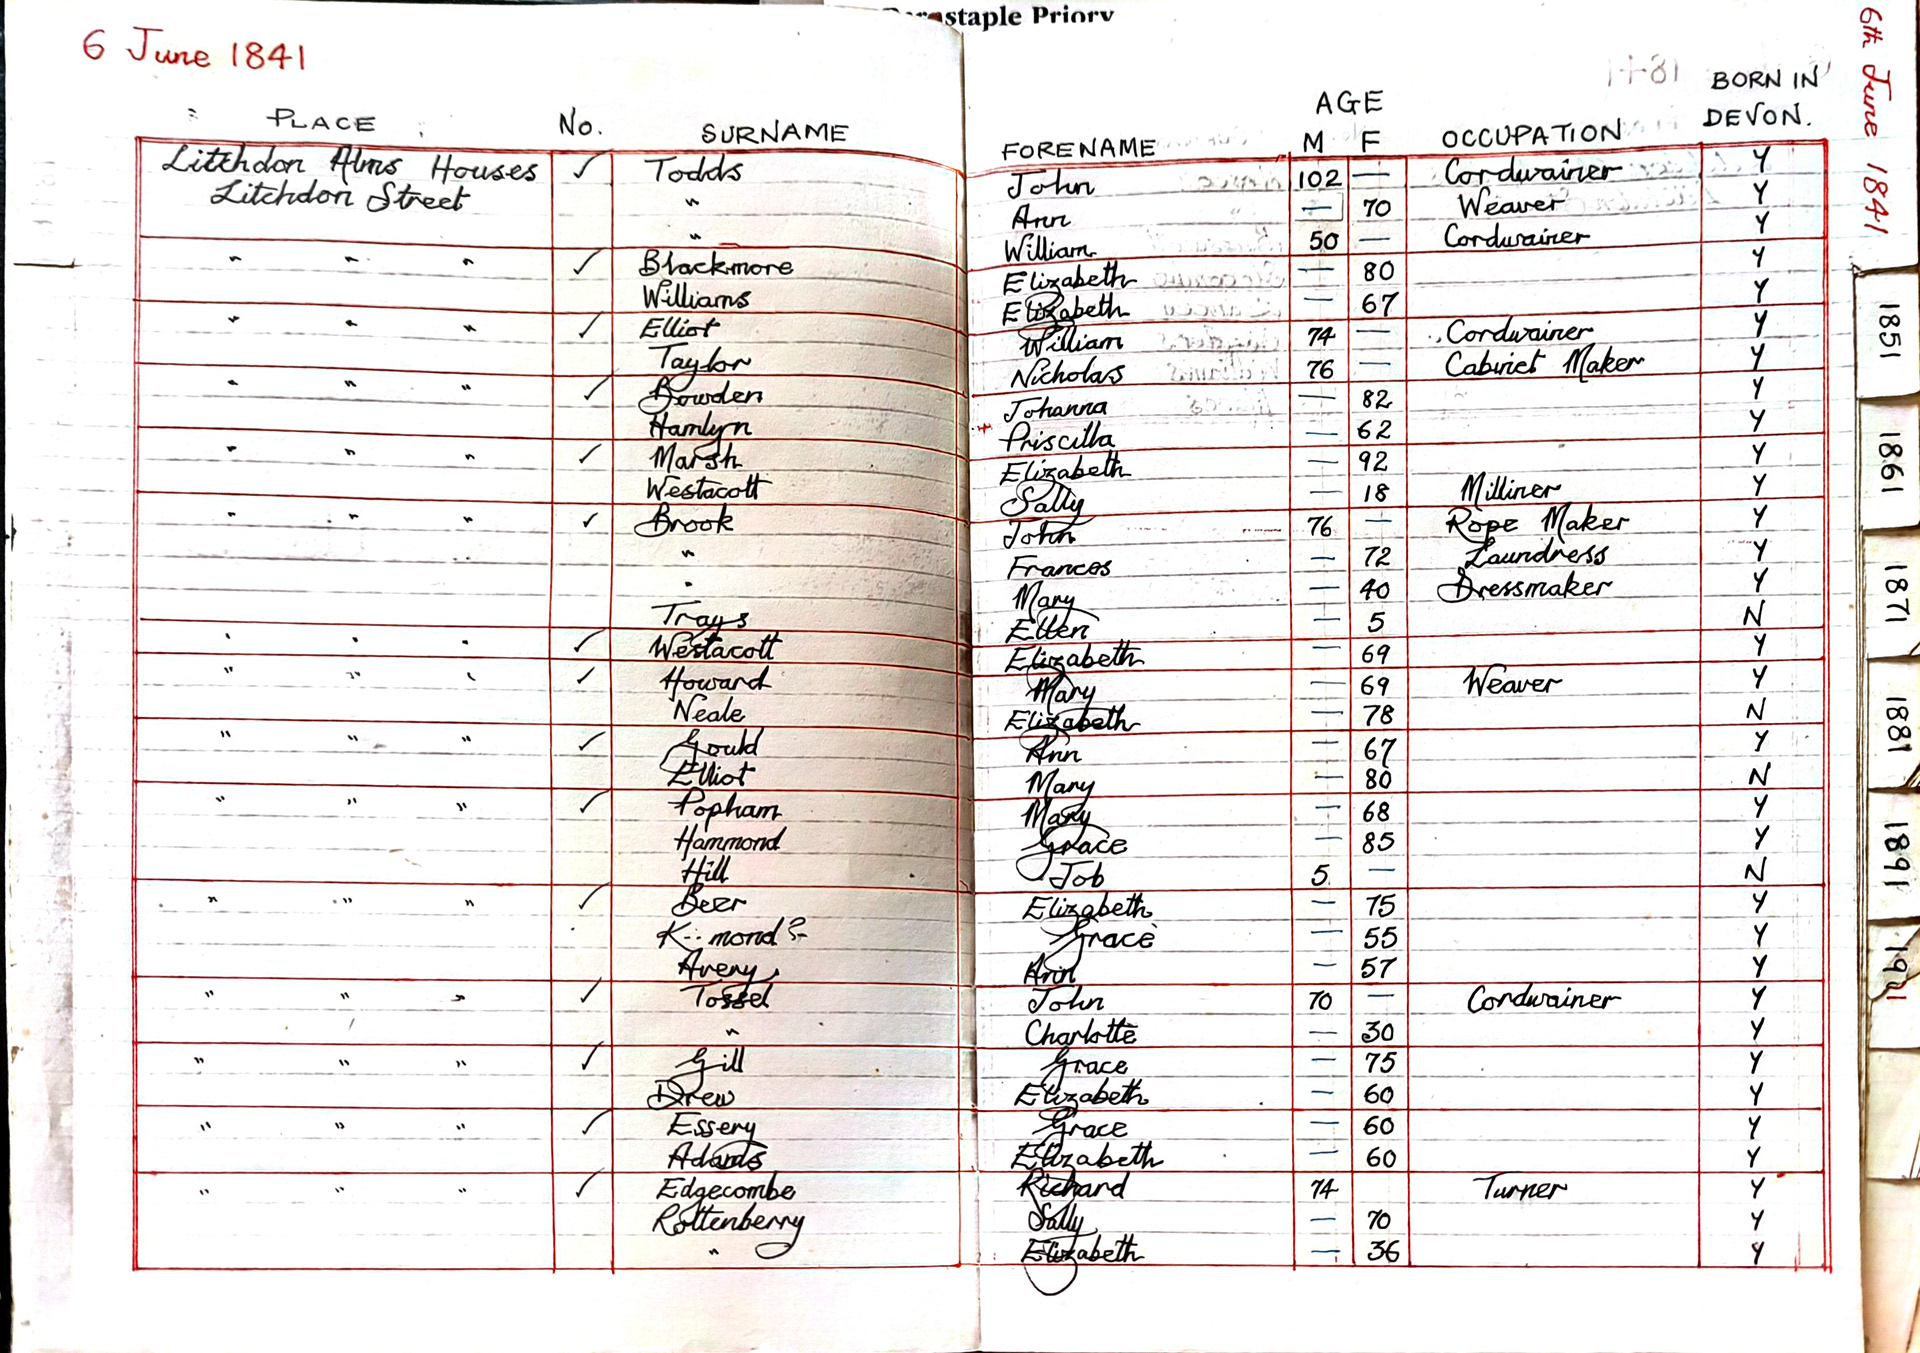 staple Priory
6 June 1841
6th June 1841
PLACE No. SURNAME FORENAME AGE M F OCCUPATION BORN IN DEVON.
Litchdon Alms Houses ✓ Todds John 102 — Cordwainer Y
Litchdon Street " Ann — 70 Weaver Y
" William 50 — Cordwainer Y
" " " ✓ Blackmore Elizabeth — 80 Y
Williams Elizabeth — 67 Y
" " " ✓ Elliot William 74 — Cordwainer Y
Taylor Nicholas 76 — Cabinet Maker Y
" " " ✓ Bowden Johanna — 82 Y
Hamlyn Priscilla — 62 Y
" " " ✓ Marsh Elizabeth — 92 Y
Westacott Sally — 18 Milliner Y
" " " ✓ Brook John 76 — Rope Maker Y
" Frances — 72 Laundress Y
" Mary — 40 Dressmaker Y
Trays Ellen — 5 N
" " " ✓ Westacott Elizabeth — 69 Y
" " " ✓ Howard Mary — 69 Weaver Y
Neale Elizabeth — 78 N
" " " ✓ Gould Ann — 67 Y
Elliot Mary — 80 N
" " " ✓ Popham Mary — 68 Y
Hammond Grace — 85 Y
Hill Job 5 — N
" " " ✓ Beer Elizabeth — 75 Y
K-- mond ? Grace — 55 Y
Avery Ann — 57 Y
" " " ✓ Tossel John 70 — Cordwainer Y
" Charlotte — 30 Y
" " " ✓ Gill Grace — 75 Y
Drew Elizabeth — 60 Y
" " " ✓ Essery Grace — 60 Y
Adams Elizabeth — 60 Y
" " " ✓ Edgecombe Richard 74 Turner Y
Rottenberry Sally — 70 Y
" Elizabeth — 36 Y
1851
1861
1871
1881
1891
1901